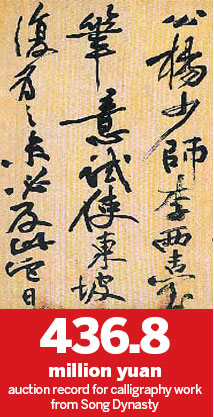 公楊少師李西臺
筆意試使東坡
復為之未必及此它日
436.8
million yuan
auction record for calligraphy work
from Song Dynasty